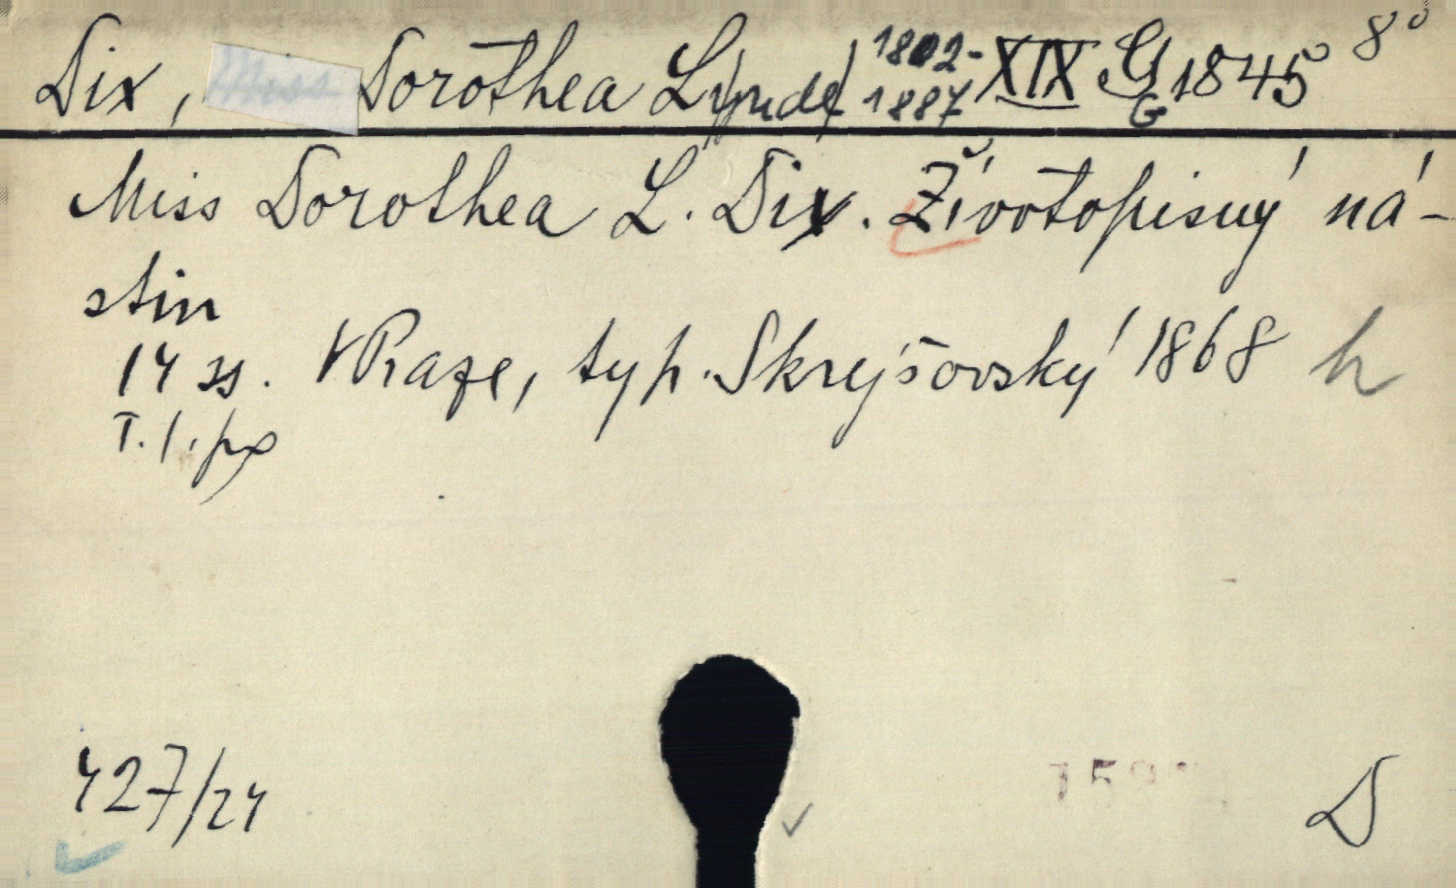 Dix, Miss Dorothea L/ynde/ 1802-1887 XIX G 1845 8°
G
Miss Dorothea L. Dix. Životopisný ná-
stin
14 ss. V Praze, typ. Skrejšovský 1868 h
T. 1. px
427/24
D